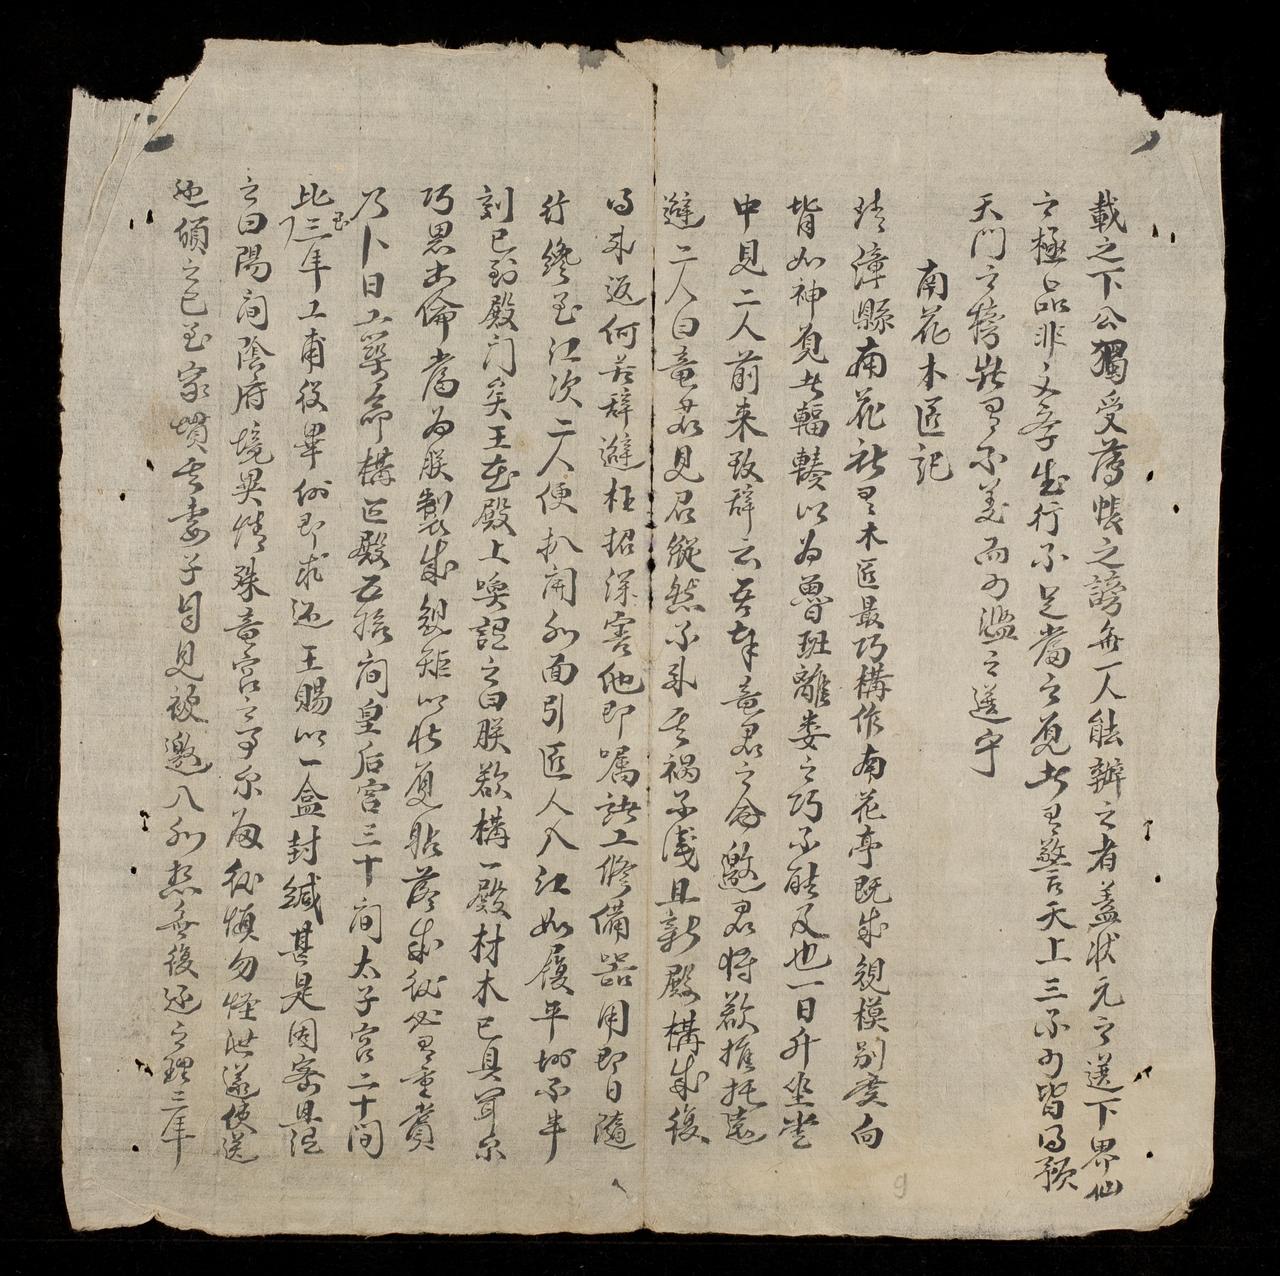 載之下公獨受薄帳之謗無一人能辦之者蓋狀元之選下界仙
之極品非文學生行不足當之見此又警言天上三不可皆得預
天門之榜此又不美而可濫之選乎
南花木匠記
清漳縣南花社有木匠最巧構作南花亭既成規模別度向
背如神見者輻輳以為魯班離婁之巧不能及也一日升坐堂
中見二人前来致辞云吾奉竜君之命邀君將欲推托遠
避二人曰竜君見召縱然不来其禍不浅且新殿構成復
得来返何苦辞避枉招深害他即嘱諸工修備器用即日隨
行纔至江次二人便扒開水面引匠人入江如履平地不半
刻已到殿门矣王在殿上喚語之曰朕欲構一殿材木已具闻尔
巧思出倫當為朕製成規矩以壮夏貽落成後必有重賞
乃卜日工築命構正殿五拾间皇后宫三十间太子宫二十间
比至三年工甫役畢他即求还王賜以一盒封緘甚是固密且語
之曰陽间陰府境異情殊竜宫之事尔每後慎勿怪泄遂使送
还頃之已至家墳其妻子目見被邀入水想無復还之理三年